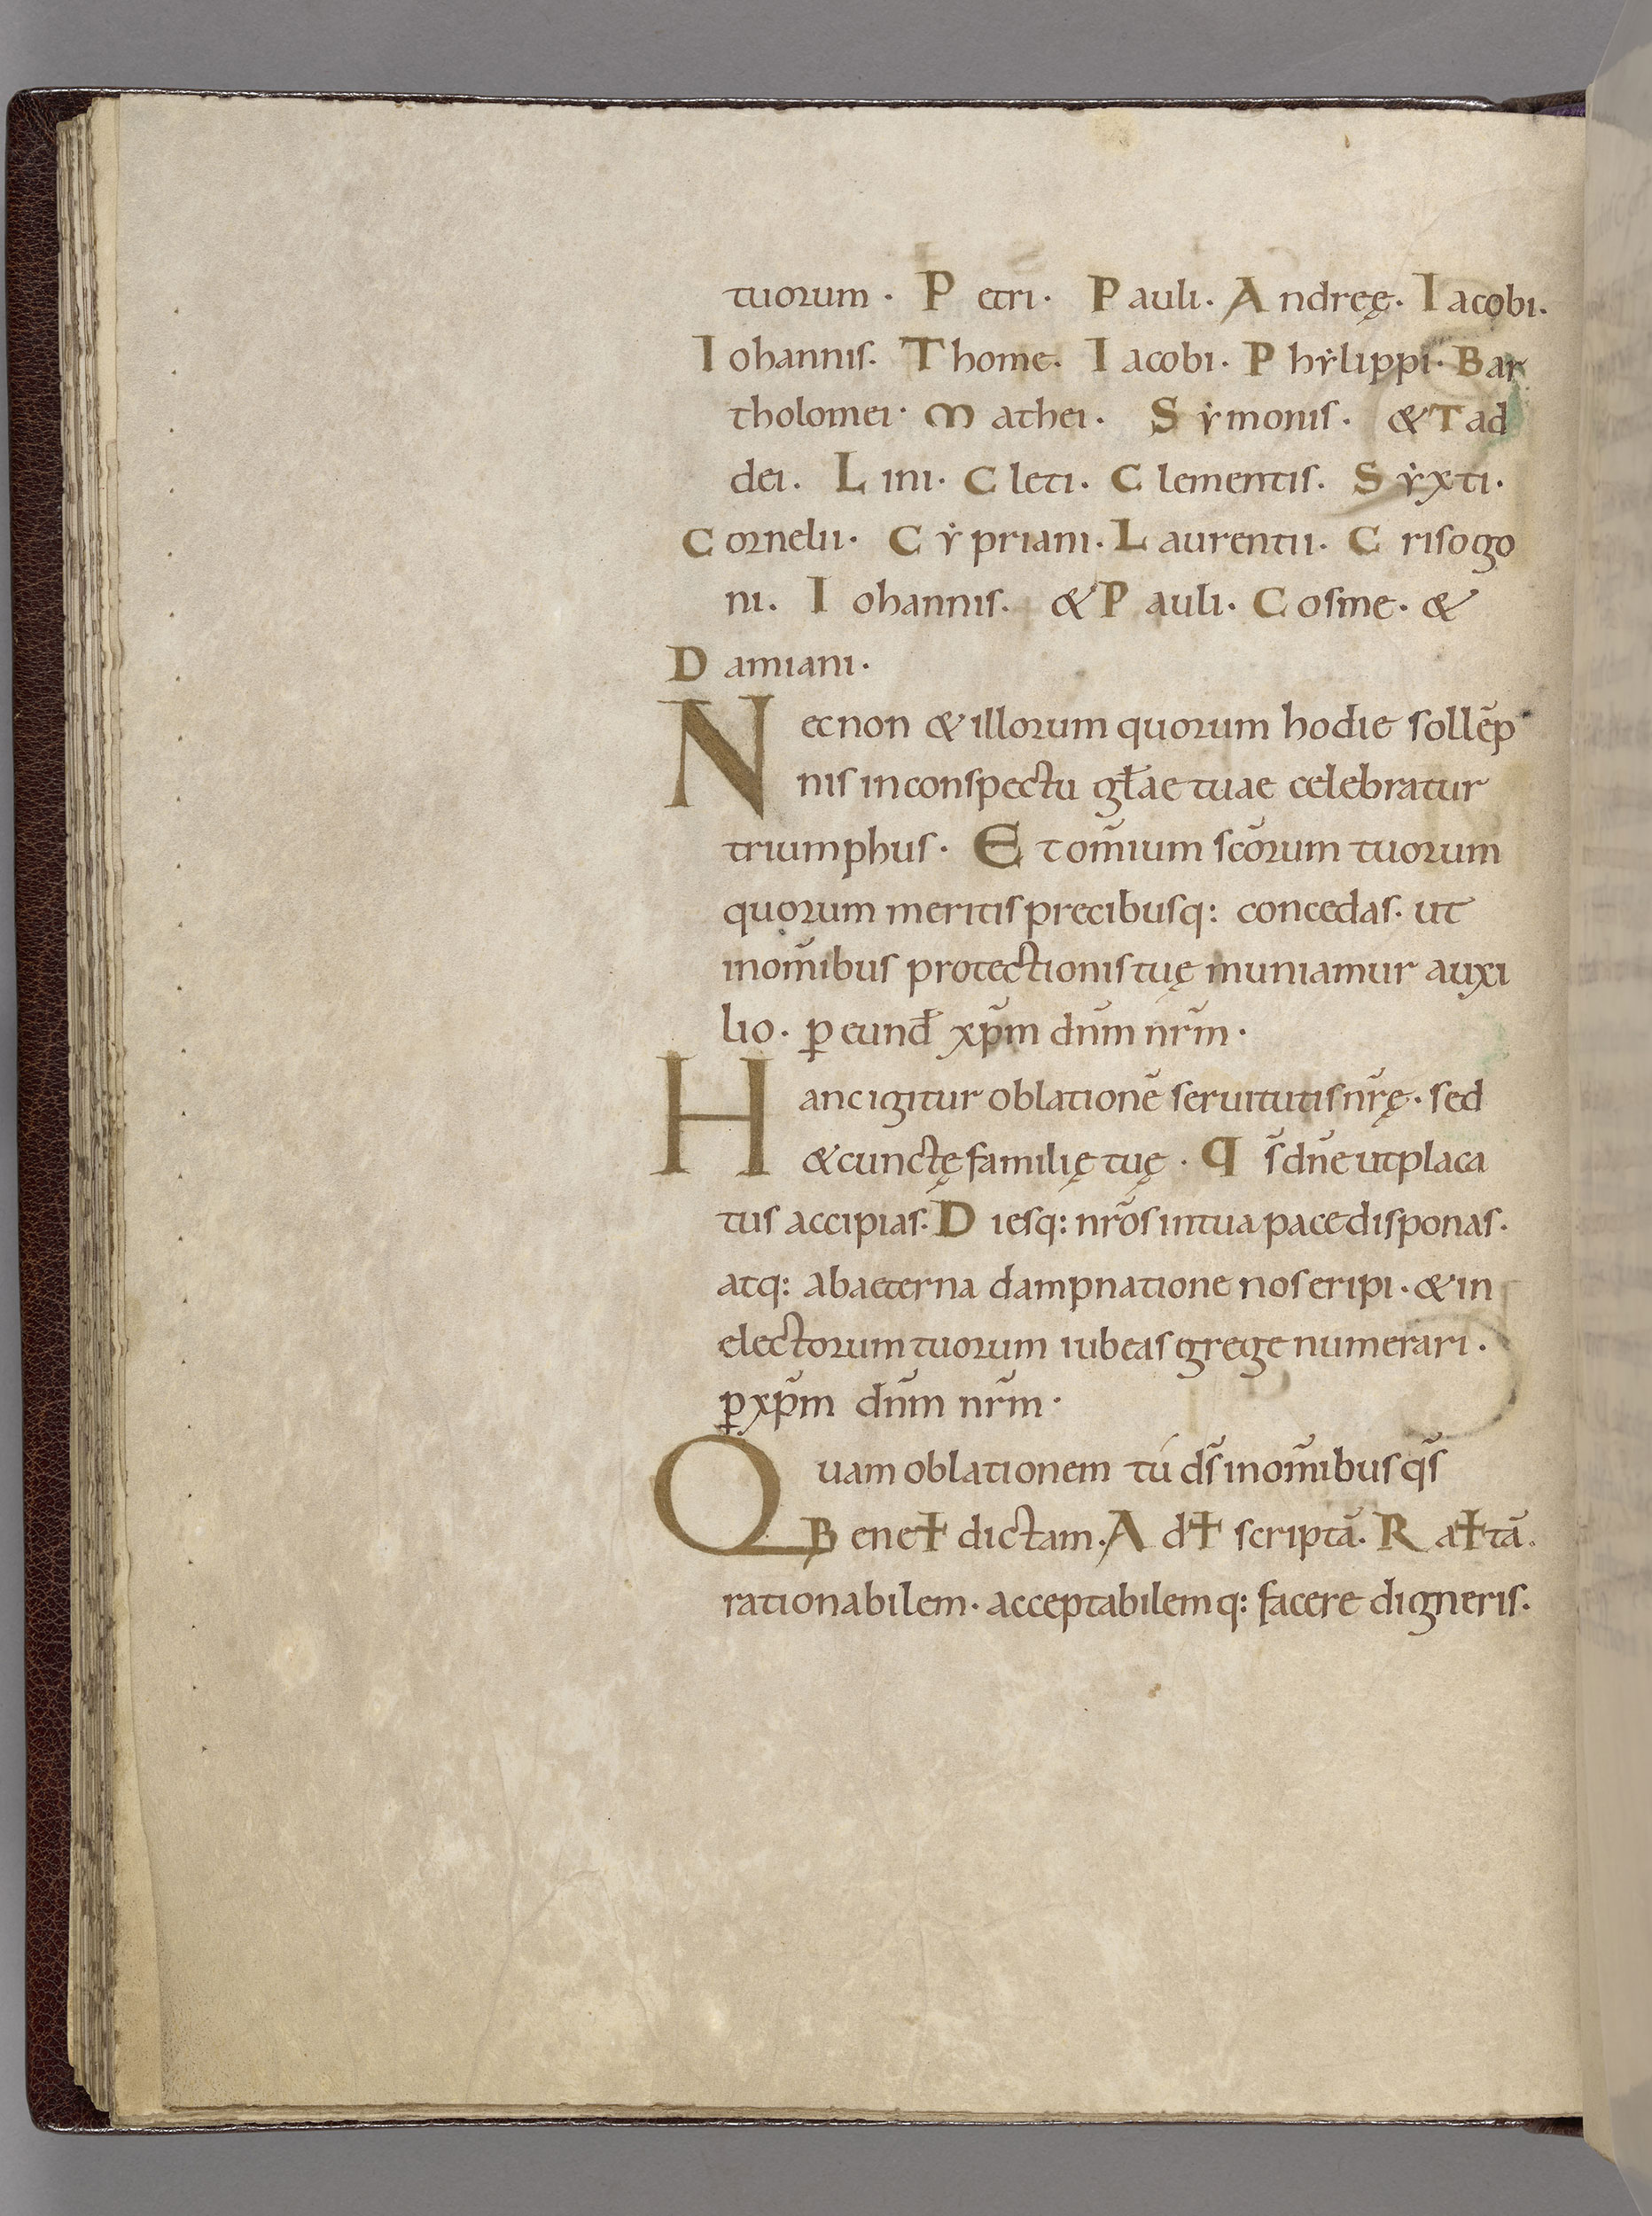 tuorum · Petri · Pauli · Andreę · Iacobi ·
Iohannis. Thome. Iacobi · Phẏlippi · Bar
tholomei · Mathei · Sẏmonis · & Tad
dei. Lini · Cleti · Clementis. Sẏxti ·
Cornelii · Cẏpriani · Laurentii · Crisogo
ni. Iohannis. & Pauli · Cosme · &
Damiani ·
Necnon & illorum quorum hodie sollēp
nis in conspectu głae tuae celebratur
triumphus · Et om̄ium sc̄orum tuorum
quorum meritis precibusq: concedas · ut
in om̄ibus protectionis tuę muniamur auxi
lio · ꝑ eunđ xp̄m dn̄m nr̄m ·
Hanc igitur oblationē seruitutis nr̄ę · sed
& cunctę familię tuę · Qs̄ dn̄e ut placa
tus accipias. Diesq: nr̄os in tua pace disponas ·
atq: ab aeterna dampnatione nos eripi · & in
electorum tuorum iubeas grege numerari ·
ꝑ xp̄m dn̄m nr̄m ·
Quam oblationem tú ds̄ in om̄ibus qs̄
Bene✝dictam. Ad✝scriptā. Ra✝tā.
rationabilem · acceptabilemq: facere digneris.